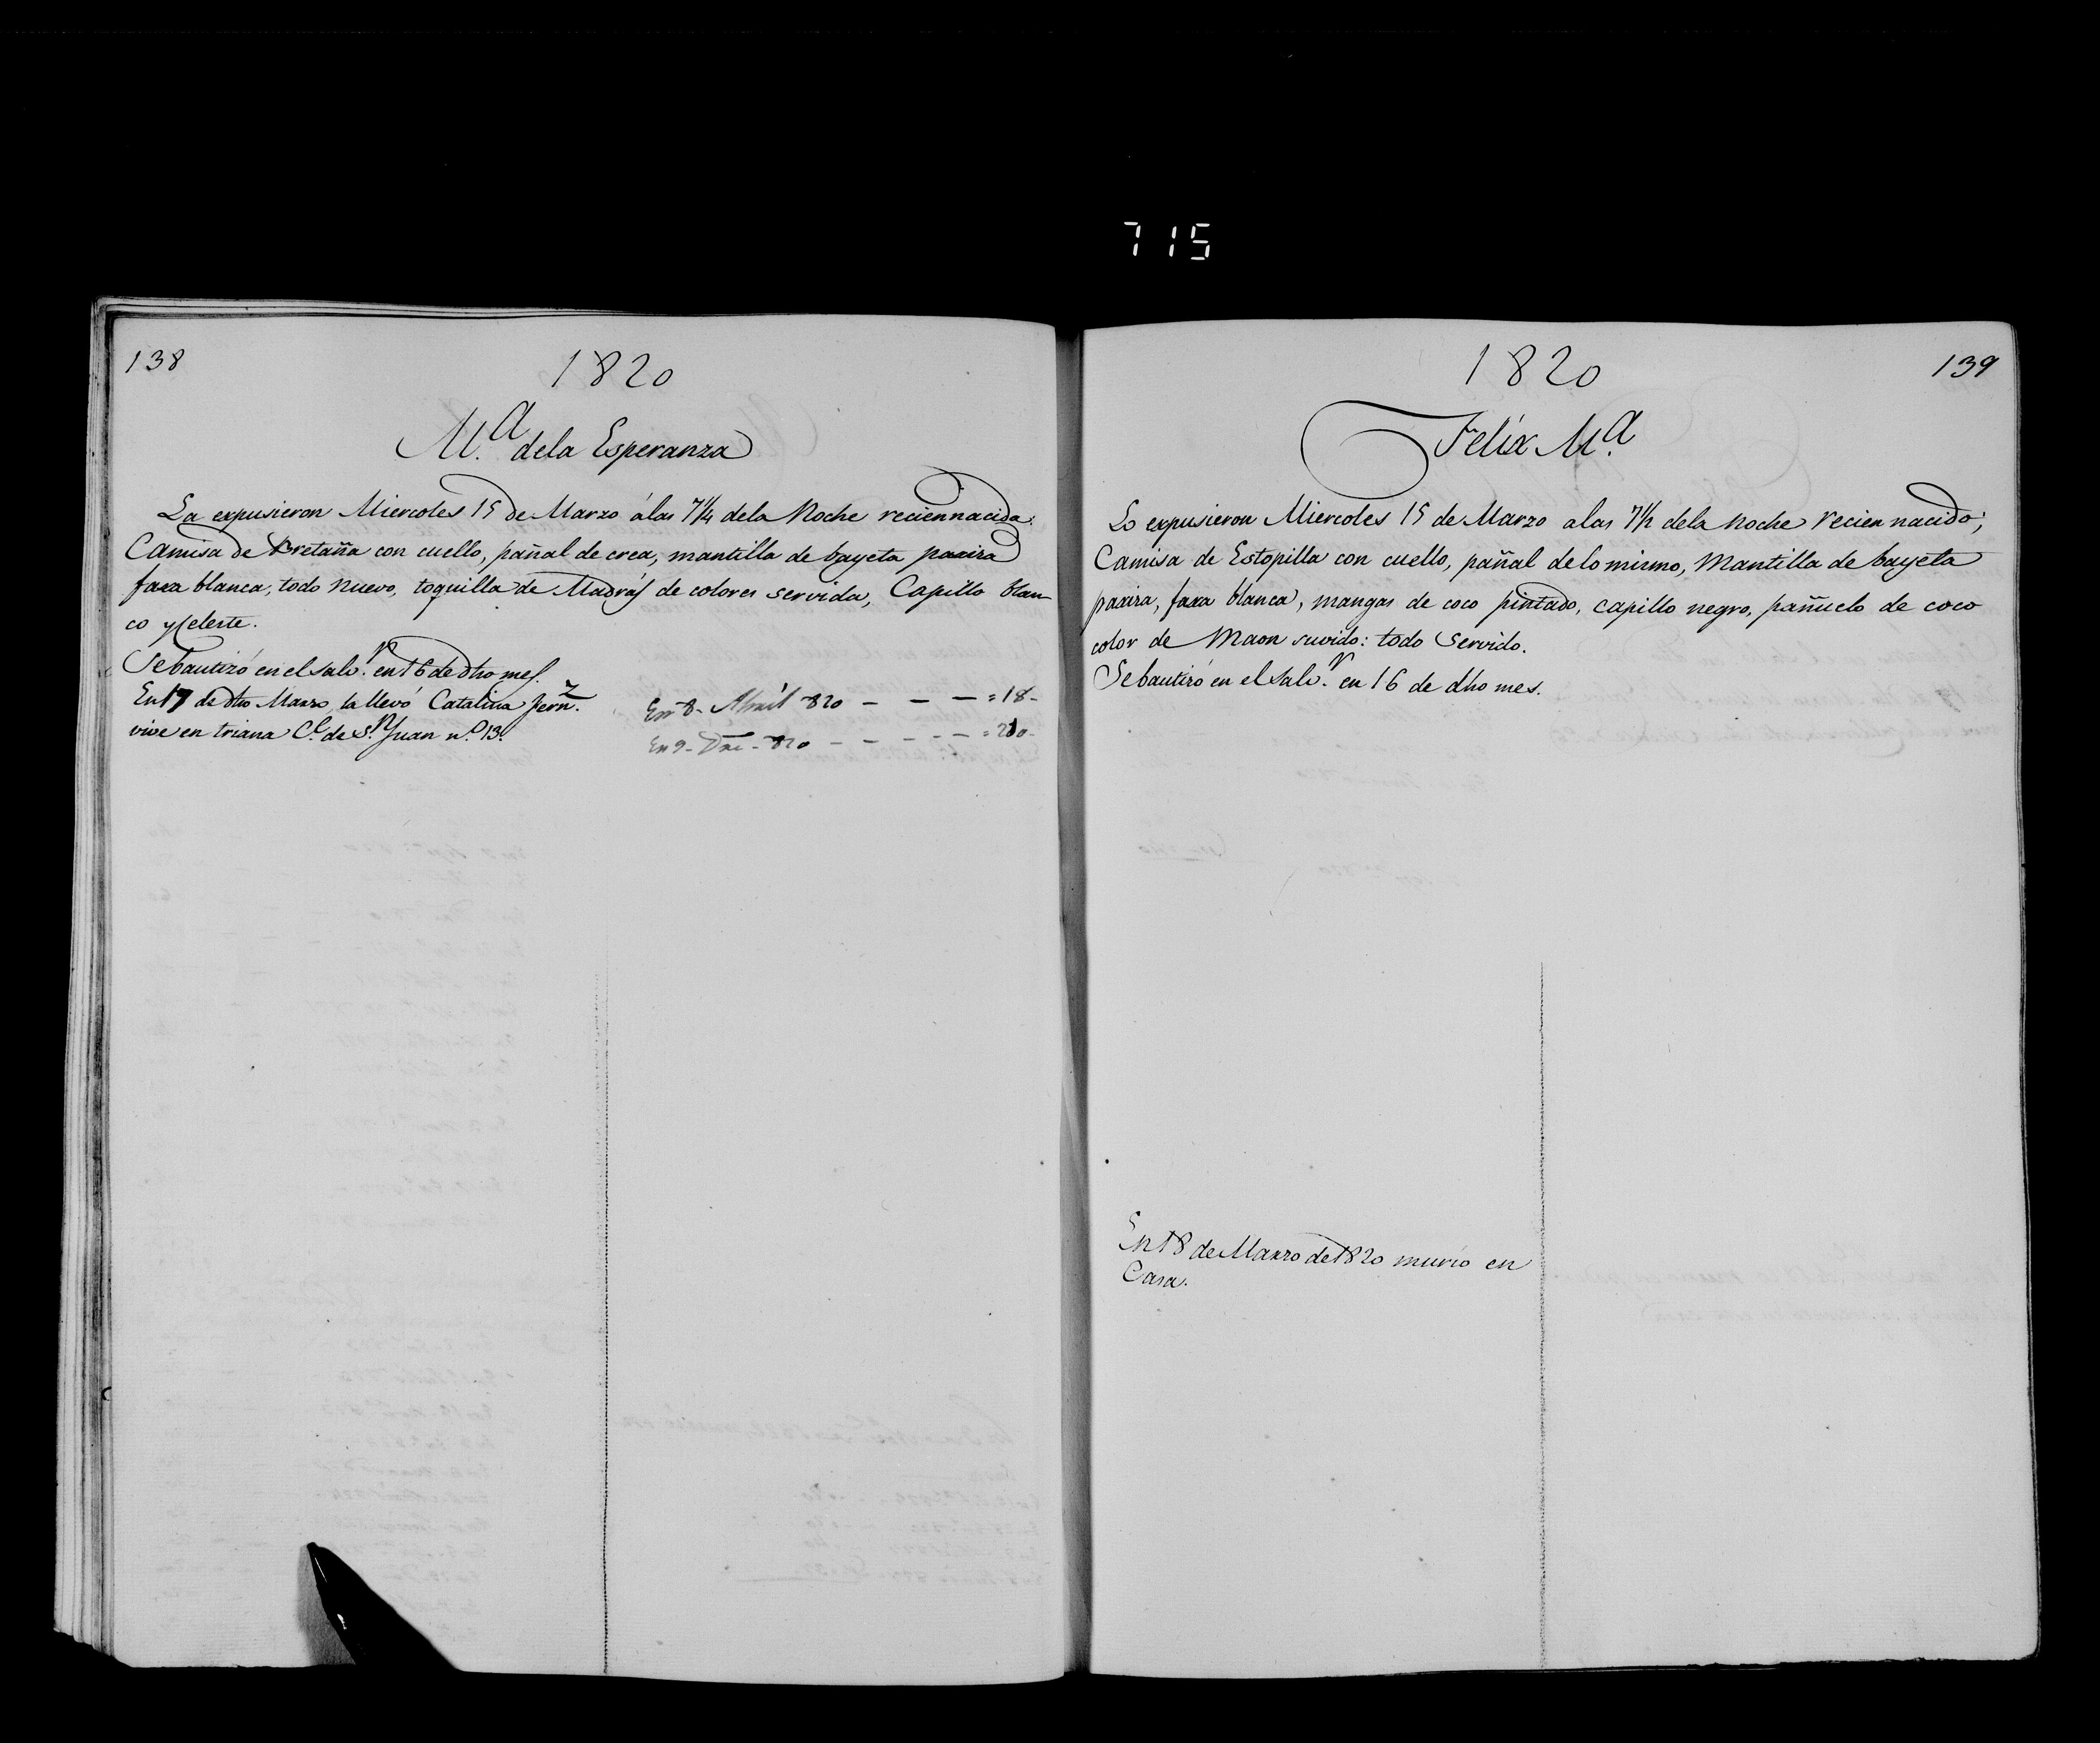 715
138
1820
M.ª dela Esperanza
La expusieron Miercoles 15 de Marzo á las 7 1/4 dela Noche reciennacida:
Camisa de Bretaña con cuello, pañal de crea, mantilla de bayeta paxiza
faxa blanca, todo nuevo, toquilla de Madrás de colores servida, Capillo blan
co y Celeste.
Sebautizó en el Salv.r en 16 de dho mes.
En 17 de dho Marzo, la llevó Catalina Fern.z
vive en triana C.e de S.n Juan n.o 13.
En 8 Abril 820 - - - = 18 -
En 9 - Dre - 820 - - - - = 210 -
1820
139
Felix M.ª
Lo expusieron Miercoles 15 de Marzo a las 7 1/2 dela Noche recien nacido;
Camisa de Estopilla con cuello, pañal de lo mismo, Mantilla de bayeta
paxiza, faxa blanca, mangas de coco pintado, capillo negro, pañuelo de coco
color de Maon : todo Servido.
Sebautizó en el Salv.r en 16 de dho mes.
En 18 de Marzo de 1820 murio en
Casa.